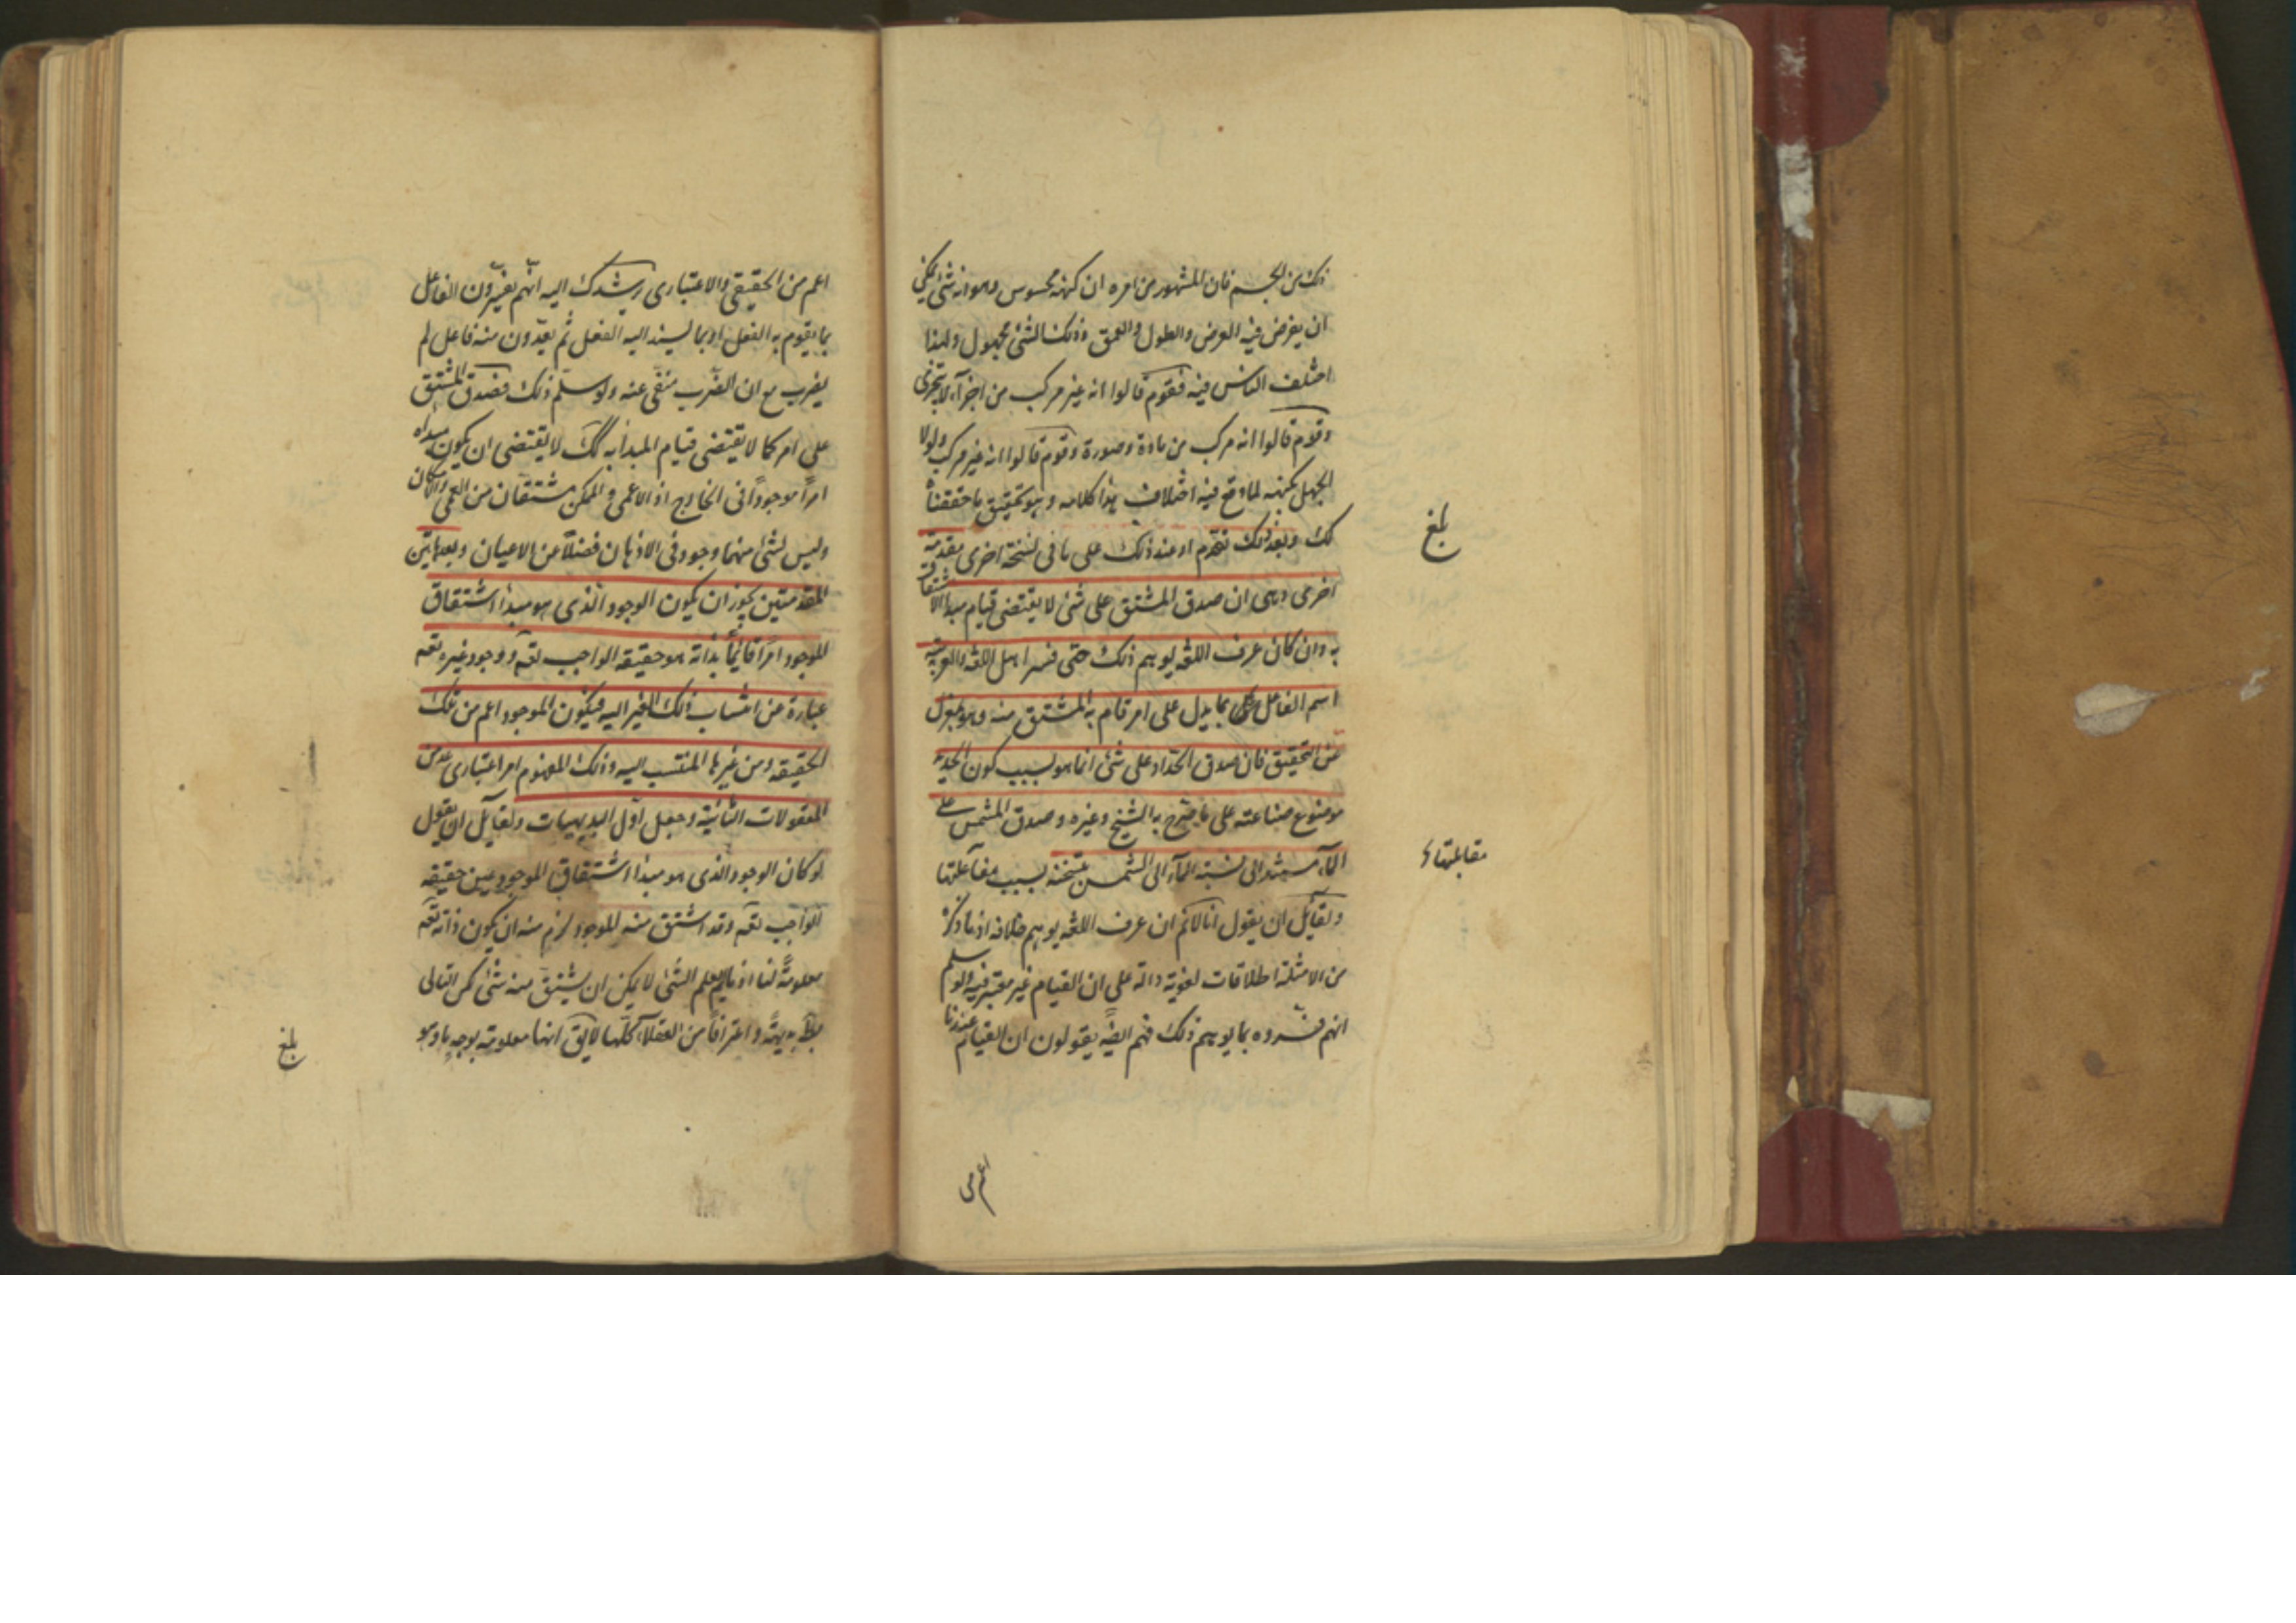 ذلك من الجسم فان المشهور من امره ان كنهه محسوس وهو انه شئ يمكن
ان يفرض فيه العرض والطول والعمق وذلك الشئ مجهول ولهذا
اختلف الناس فيه فقوم قالوا انه غير مركب من اجزآء لا يتجزى
وقوم قالوا انه مركب من مادة وصورة وقوم قالوا انه غير مركب ولولا
الجهل بكنهه لما وقع فيه اختلاف هذا كلامه وهو تحقيق ما حققناه
لك وبعد ذلك نقدم او عند ذلك على ما فى نسخة اخرى مقدمة
اخرى وهى ان صدق المشتق على شئ لا يقتضى قيام مبدا الاشتقاق
به وان كان عرف اللغه يوهم ذلك حتى فسر اهل اللغه والعربية
اسم الفاعل بما يدل على امر قام به المشتق منه وهو بمعزل
عن التحقيق فان صدق الحداد على شئ انما هو بسبب كون الحديد
موضوع صناعته على ما صرح به الشيخ وغيره وصدق المشمس على
المآء مستند الى نسبة المآء الى الشمس بتسخنه بسبب مقابلتها
ولقآئل ان يقول انا لانم ان عرف اللغه يوهم خلافه اذ ما ذكره
من الامثلة اطلاقات لغوية دالة على ان القيام غير معتبر فيه ولو سلم
انهم فسروه بما يوهم ذلك فهم ايضًا يقولون ان القيام عندنا
اعم من
بلغ
مقابلتها
اعم من الحقيقى والاعتبارى يرشدك اليه انهم يفسرون الفاعل
بما يقوم به الفعل او بما يسند اليه الفعل ثم يعدّون منه فاعل لم
يضرب مع ان الضرب منفى عنه ولو سلم ذلك فصدق المشتق
على امر كما لا يقتضى قيام المبدأ به كك لا يقتضى ان يكون مبداه
امرًا موجودًا فى الخارج اذ الاعمى والممكن مشتقان من العمى والامكان
وليس لشئ منهما وجود فى الاذهان فضلاً عن الاعيان وبعد هاتين
المقدمتين يجوز ان يكون الوجود الذى هو مبدأ اشتقاق
الموجود امرًا قائمًا بذاته هو حقيقة الواجب تعه ووجود غيره تعه
عبارة عن انتساب ذلك الغير اليه فيكون الموجود اعم من تلك
الحقيقه ومن غيرها المنتسب اليه وذلك المفهوم امر اعتبارى عد من
المعقولات الثانية وجعل اوّل البديهيات ولقآئل ان يقول
لو كان الوجود الذى هو مبدا اشتقاق الموجود عين حقيقه
الواجب تعه وقد اشتق منه الموجود لزم منه ان يكون ذاته تعه
معلومةً لنا اذ ما لم يعلم الشئ لا يمكن ان يشتق منه شئ لكن التالى
بط بديهةً واعترافًا من العقلآء كلهم لا يق انها معلومة بوجه ما وهو
بلغ